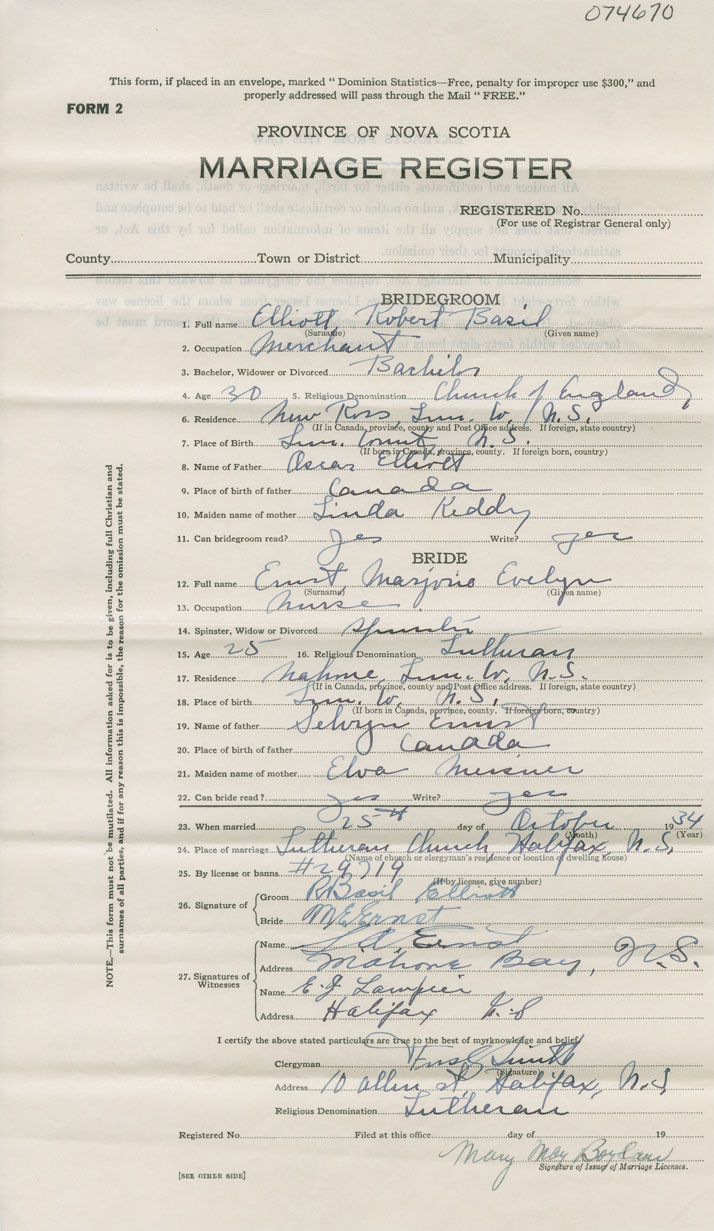 074670
This form, if placed in an envelope, marked " Dominion Statistics—Free, penalty for improper use $300," and
properly addressed will pass through the Mail " FREE."
FORM 2
PROVINCE OF NOVA SCOTIA
MARRIAGE REGISTER
REGISTERED No.
(For use of Registrar General only)
County Town or District Municipality
BRIDEGROOM
1. Full name Elliott, Robert Basil
(Surname) (Given name)
2. Occupation Merchant
3. Bachelor, Widower or Divorced Bachelor
4. Age 30 5. Religious Denomination Church of England
6. Residence New Ross, Lun. Co, N.S.
(If in Canada, province, county and Post Office address. If foreign, state country)
7. Place of Birth Lun. County, N.S.
(If born in Canada, province, county. If foreign born, country)
8. Name of Father Oscar Elliott
9. Place of birth of father Canada
10. Maiden name of mother Linda Keddy
11. Can bridegroom read? Yes Write? yes
BRIDE
12. Full name Ernst, Marjorie Evelyn
(Surname) (Given name)
13. Occupation Nurse
14. Spinster, Widow or Divorced Spinster
15. Age 25 16. Religious Denomination Lutheran
17. Residence Mahone, Lun. Co, N.S.
(If in Canada, province, county and Post Office address. If foreign, state country)
18. Place of birth Lun. Co, N.S.
(If born in Canada, province, county. If foreign born, country)
19. Name of father Selvyn Ernst
20. Place of birth of father Canada
21. Maiden name of mother Elva Meisner
22. Can bride read? yes Write? yes
23. When married 25th day of October 1934
(Month) (Year)
24. Place of marriage Lutheran Church, Halifax, N.S,
(Name of church or clergyman's residence or location of dwelling house)
25. By license or banns #29719
(If by license, give number)
26. Signature of Groom R Basil Elliott
Bride M.E. Ernst
27. Signatures of Witnesses Name Ernst
Address Mahone Bay, N.S.
Name E.J. Lampier
Address Halifax N.S
I certify the above stated particulars are true to the best of my knowledge and belief
Clergyman Smith
(Signature)
Address 10 Allen St, Halifax, N.S
Religious Denomination Lutheran
Registered No. Filed at this office day of 19
Mary May Boylan
Signature of Issuer of Marriage Licenses.
[SEE OTHER SIDE]
NOTE.—This form must not be mutilated. All information asked for is to be given, including full Christian and
surnames of all parties, and if for any reason this is impossible, the reason for the omission must be stated.